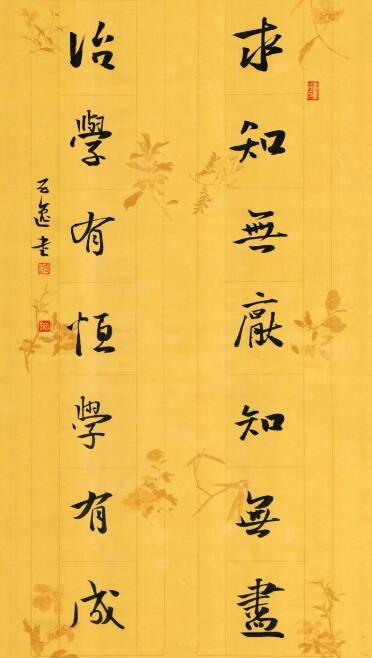 求知無厭知無盡
治學有恒學有成
云逸書